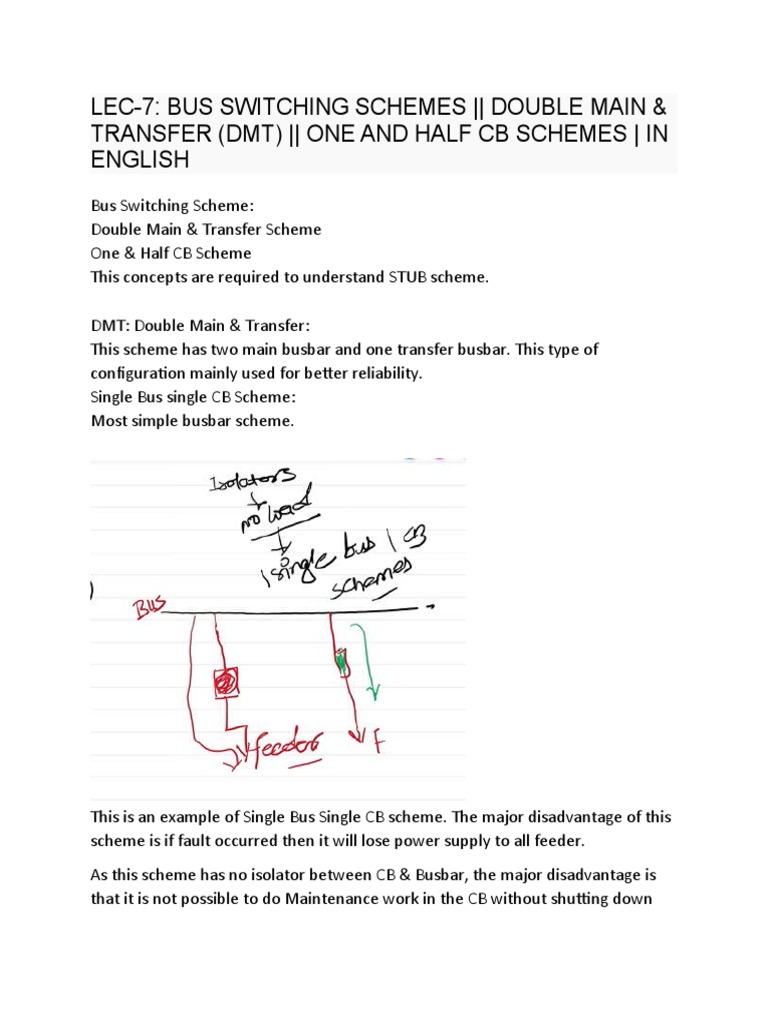 LEC-7: BUS SWITCHING SCHEMES || DOUBLE MAIN &
TRANSFER (DMT) || ONE AND HALF CB SCHEMES | IN
ENGLISH
Bus Switching Scheme:
Double Main & Transfer Scheme
One & Half CB Scheme
This concepts are required to understand STUB scheme.
DMT: Double Main & Transfer:
This scheme has two main busbar and one transfer busbar. This type of
configuration mainly used for better reliability.
Single Bus single CB Scheme:
Most simple busbar scheme.
Isolators
no load
single bus 1 CB
schemes
BUS
feeder
F
This is an example of Single Bus Single CB scheme. The major disadvantage of this
scheme is if fault occurred then it will lose power supply to all feeder.
As this scheme has no isolator between CB & Busbar, the major disadvantage is
that it is not possible to do Maintenance work in the CB without shutting down